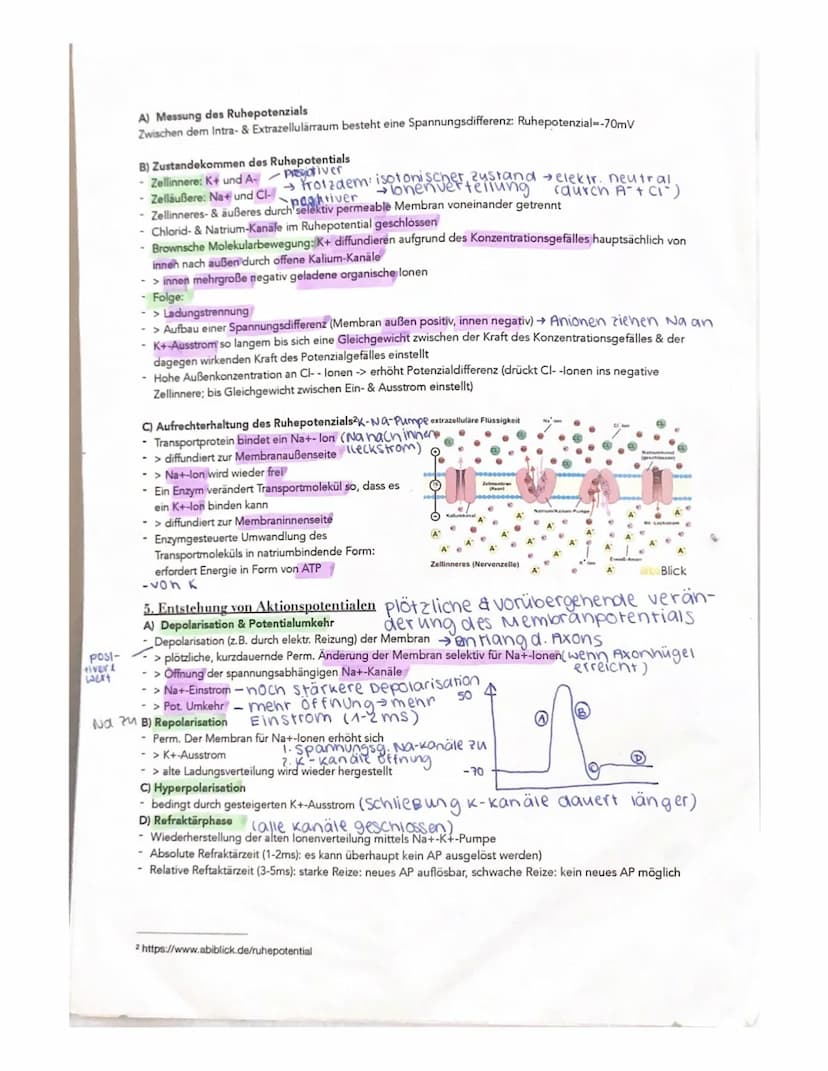 A) Messung des Ruhepotenzials
Zwischen dem Intra- & Extrazellulärraum besteht eine Spannungsdifferenz: Ruhepotenzial=-70mV
B) Zustandekommen des Ruhepotentials
- Zellinnere: K+ und A-
→ trotzdem: isotonischer zustand → elektr. neutral
- Zelläußere: Na+ und Cl-
→ Ionenverteilung (durch A⁻ + Cl⁻)
- Zellinneres- & äußeres durch selektiv permeable Membran voneinander getrennt
- Chlorid- & Natrium-Kanäle im Ruhepotential geschlossen
- Brownsche Molekularbewegung: K+ diffundieren aufgrund des Konzentrationsgefälles hauptsächlich von
innen nach außen durch offene Kalium-Kanäle
- > innen mehrgroße negativ geladene organische Ionen
- Folge:
- > Ladungstrennung
- > Aufbau einer Spannungsdifferenz (Membran außen positiv, innen negativ) → Anionen ziehen Na an
- K+-Ausstrom so langem bis sich eine Gleichgewicht zwischen der Kraft des Konzentrationsgefälles & der
dagegen wirkenden Kraft des Potenzialgefälles einstellt
- Hohe Außenkonzentration an Cl- - Ionen -> erhöht Potenzialdifferenz (drückt Cl- -Ionen ins negative
Zellinnere; bis Gleichgewicht zwischen Ein- & Ausstrom einstellt)
C) Aufrechterhaltung des Ruhepotenzials² K-Na-Pumpe
- Transportprotein bindet ein Na+- Ion (Na nach innen
- > diffundiert zur Membranaußenseite Leckstrom)
- > Na+-Ion wird wieder frei
- Ein Enzym verändert Transportmolekül so, dass es
ein K+-Ion binden kann
- > diffundiert zur Membraninnenseite
- Enzymgesteuerte Umwandlung des
Transportmoleküls in natriumbindende Form:
erfordert Energie in Form von ATP
- von K
extrazelluläre Flüssigkeit
Na⁺ Ion
Cl⁻ Ion
Natriumkanal
(geschlossen)
Zellmembran
(Axon)
Kaliumkanal
Natrium/Kalium-Pumpe
Na⁺ Leckstrom
K⁺ Ion
Eiweiß-Anion
Zellinneres (Nervenzelle)
Blick
5. Entstehung von Aktionspotentialen plötzliche & vorübergehende verän-
derung des Membranpotentials
A) Depolarisation & Potentialumkehr
- Depolarisation (z.B. durch elektr. Reizung) der Membran → entlang d. Axons
posi-
tiverer
wert
- > plötzliche, kurzdauernde Perm. Änderung der Membran selektiv für Na+-Ionen (wenn Axonhügel
erreicht)
- > Öffnung der spannungsabhängigen Na+-Kanäle
- > Na+-Einstrom – noch stärkere Depolarisation
- > Pot. Umkehr – mehr Öffnung → mehr
Einstrom (1-2ms)
Na zu B) Repolarisation
- Perm. Der Membran für Na+-Ionen erhöht sich
1. Spannungsg. Na-kanäle zu
- > K+-Ausstrom
2. K⁺-kanäle Öffnung
- > alte Ladungsverteilung wird wieder hergestellt
50
-70
A
B
C
D
C) Hyperpolarisation
- bedingt durch gesteigerten K+-Ausstrom (Schließung K-kanäle dauert länger)
D) Refraktärphase (alle kanäle geschlossen)
- Wiederherstellung der alten Ionenverteilung mittels Na+-K+-Pumpe
- Absolute Refraktärzeit (1-2ms): es kann überhaupt kein AP ausgelöst werden)
- Relative Reftaktärzeit (3-5ms): starke Reize: neues AP auflösbar, schwache Reize: kein neues AP möglich
² https://www.abiblick.de/ruhepotential